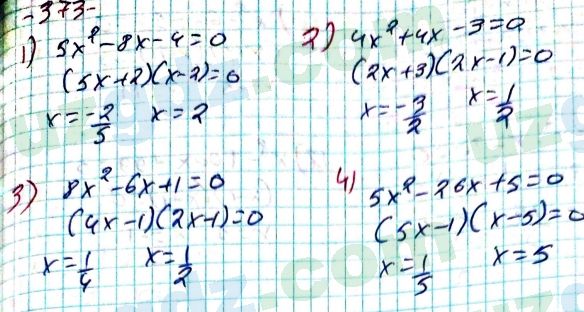 -373-
1) 5x² - 8x - 4 = 0
(5x+2)(x-2)=0
x = -2/5 x = 2
2) 4x² + 4x - 3 = 0
(2x+3)(2x-1)=0
x = -3/2 x = 1/2
3) 8x² - 6x + 1 = 0
(4x-1)(2x-1)=0
x = 1/4 x = 1/2
4) 5x² - 26x + 5 = 0
(5x-1)(x-5)=0
x = 1/5 x = 5